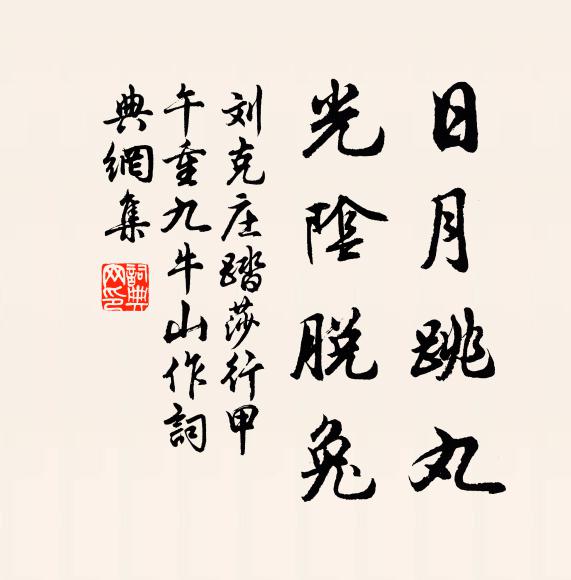 日月跳丸
光陰脱兔
刘克庄踏莎行甲
午重九牛山作詞
典網集
詞典网印